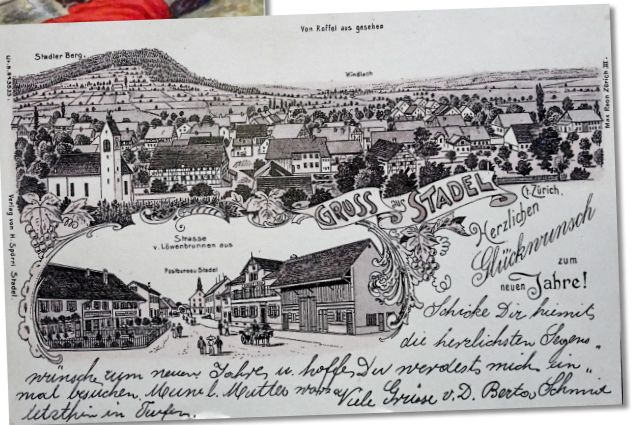 Von Raffel aus gesehen
Stadler Berg.
Windlach
Max Raon Zürich III.
Verlag von H. Spörri Stadel.
GRUSS aus STADEL
Ct. Zürich.
Strasse
v. Löwenbrunnen aus
Postbureau Stadel
Herzlichen
Glückwunsch
zum
neuen Jahre!
Schicke Dir hiemit
die herzlichsten Segens„
wünsche zum neuen Jahre u. hoffe Du werdest mich ein„
mal besuchen. Meine l. Mutter war
letzthin in Turfen.
Viele Grüsse v. D. Berta Schmid